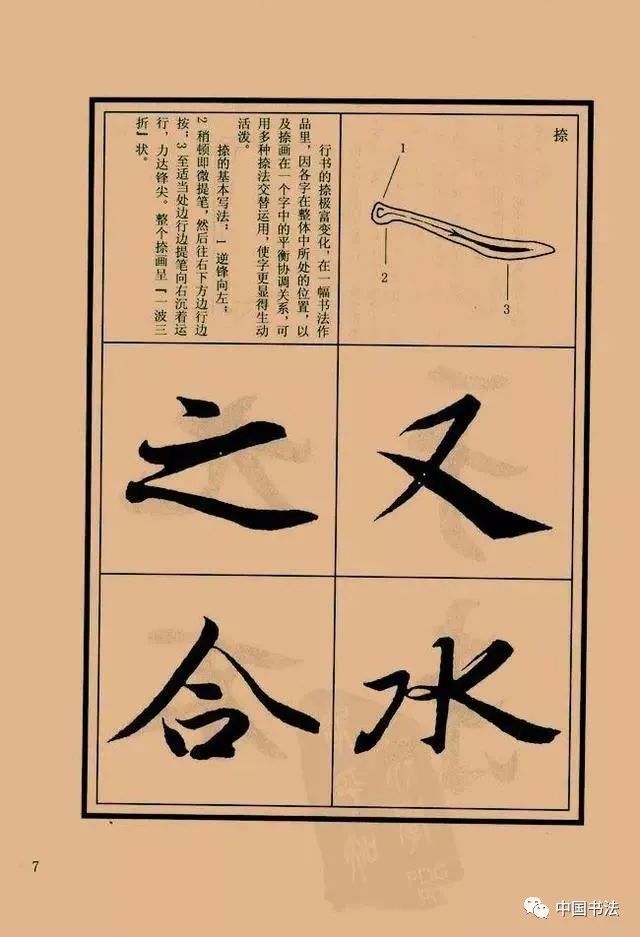 捺
1
2
3
行书的捺极富变化，在一幅书法作
品里，因各字在整体中所处的位置，以
及捺画在一个字中的平衡协调关系，可
用多种捺法交替运用，使字更显得生动
活泼。
捺的基本写法：1 逆锋向左；
2 稍顿即微提笔，然后往右下方边行边
按；3 至适当处边行边提笔向右沉着运
行，力达锋尖。整个捺画呈『一波三
折』状。
又
水
之
合
7
中国书法